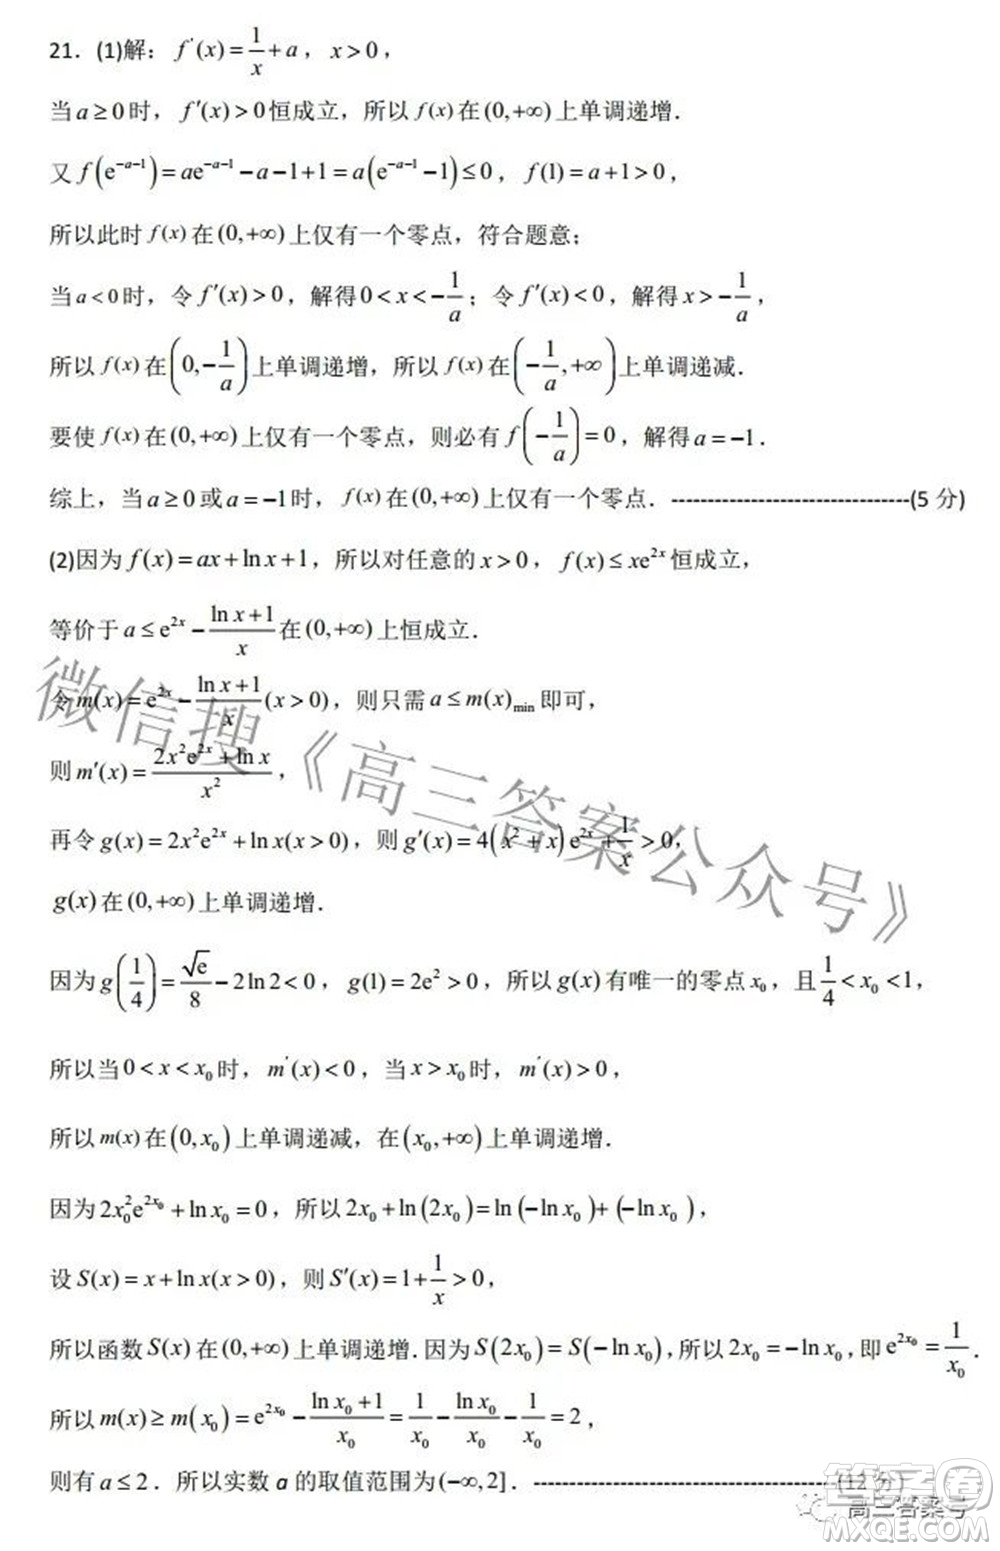 21．(1)解：f'(x)=1/x+a，x>0，
当a≥0时，f′(x)>0恒成立，所以f(x)在(0,+∞)上单调递增．
又f(e^{-a-1})=ae^{-a-1}-a-1+1=a(e^{-a-1}-1)≤0，f(1)=a+1>0，
所以此时f(x)在(0,+∞)上仅有一个零点，符合题意；
当a<0时，令f′(x)>0，解得0<x<-1/a；令f′(x)<0，解得x>-1/a，
所以f(x)在(0,-1/a)上单调递增，所以f(x)在(-1/a,+∞)上单调递减．
要使f(x)在(0,+∞)上仅有一个零点，则必有f(-1/a)=0，解得a=-1．
综上，当a≥0或a=-1时，f(x)在(0,+∞)上仅有一个零点．---------------------------------(5分)
(2)因为f(x)=ax+lnx+1，所以对任意的x>0，f(x)≤xe^{2x}恒成立，
等价于a≤e^{2x}-(lnx+1)/x在(0,+∞)上恒成立．
令m(x)=e^{2x}-(lnx+1)/x(x>0)，则只需a≤m(x)_{min}即可，
则m′(x)=(2x²e^{2x}+lnx)/x²，
再令g(x)=2x²e^{2x}+lnx(x>0)，则g′(x)=4(x²+x)e^{2x}+1/x>0，
g(x)在(0,+∞)上单调递增．
因为g(1/4)=√e/8-2ln2<0，g(1)=2e²>0，所以g(x)有唯一的零点x₀，且1/4<x₀<1，
所以当0<x<x₀时，m'(x)<0，当x>x₀时，m'(x)>0，
所以m(x)在(0,x₀)上单调递减，在(x₀,+∞)上单调递增．
因为2x₀²e^{2x₀}+lnx₀=0，所以2x₀+ln(2x₀)=ln(-lnx₀)+(-lnx₀)，
设S(x)=x+lnx(x>0)，则S′(x)=1+1/x>0，
所以函数S(x)在(0,+∞)上单调递增．因为S(2x₀)=S(-lnx₀)，所以2x₀=-lnx₀，即e^{2x₀}=1/x₀．
所以m(x)≥m(x₀)=e^{2x₀}-(lnx₀+1)/x₀=1/x₀-lnx₀/x₀-1/x₀=2，
则有a≤2．所以实数a的取值范围为(-∞,2]．------------------------------------------(12分)
微信搜《高三答案公众号》
高三答案号
答案卷
MXQE.COM